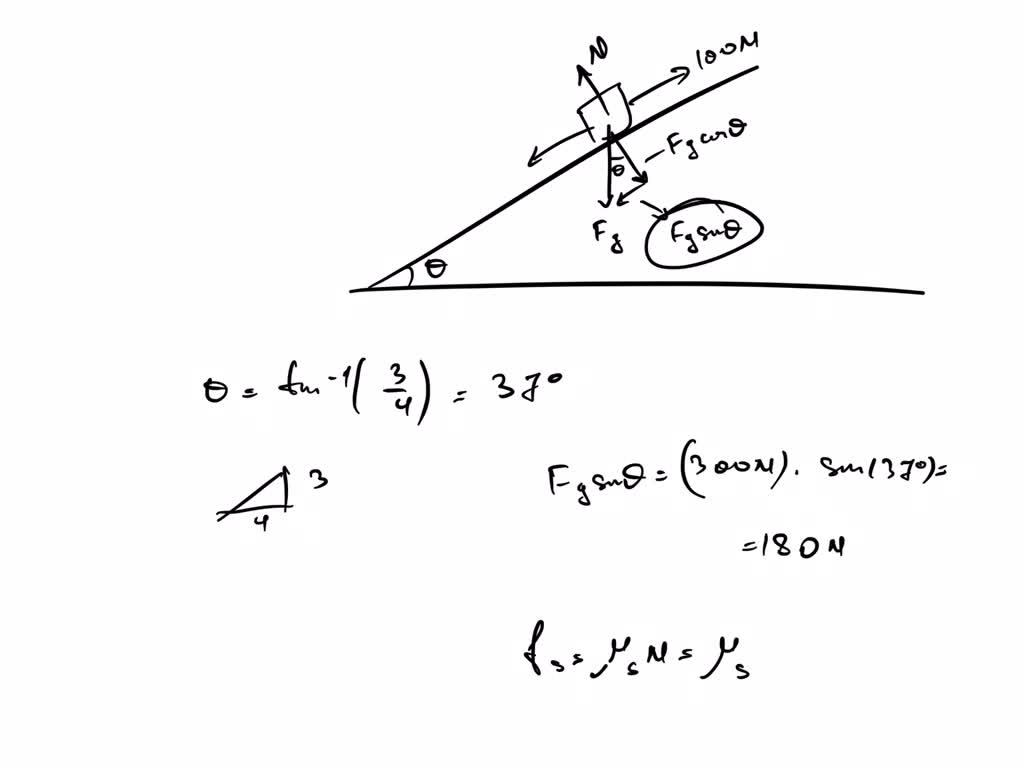 N
100N
θ
Fg cosθ
Fg
Fg sinθ
θ
θ = tan⁻¹(3/4) = 37°
3
4
Fg sinθ = (300N). sin(37°) =
= 180N
fs = μs N = μs